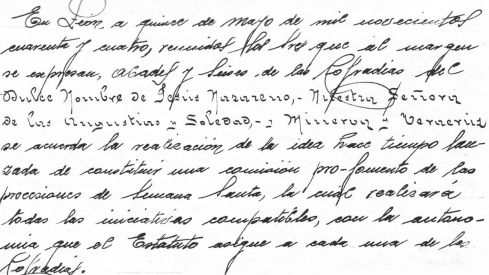 En León, a quince de mayo de mil novecientos
cuarenta y cuatro, reunidos los sres que al margen
se expresan, Abades y Seises de las Cofradías del
Dulce Nombre de Jesús Nazareno,- Nuestra Señora
de las Angustias y Soledad,- y Minerva y Veracruz
se acuerda la realización de la idea hace tiempo lan-
zada de constituir una comisión pro-fomento de las
procesiones de Semana Santa, la cual realizará
todas las iniciativas compatibles, con la autono-
mia que el Estatuto asigne a cada una de las
Cofradías.